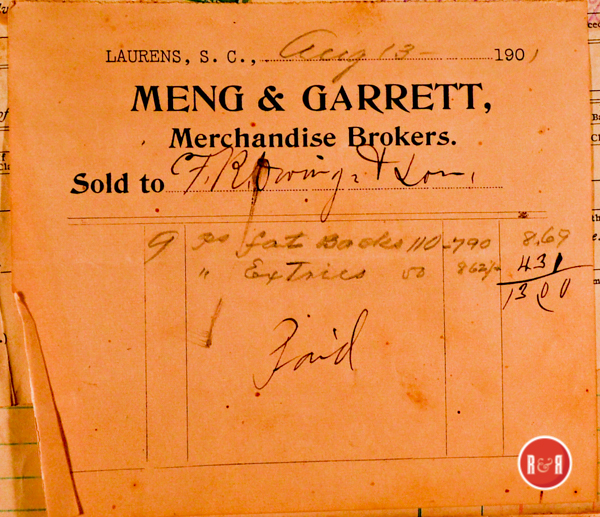 LAURENS, S. C., Aug 13 1901
MENG & GARRETT,
Merchandise Brokers.
Sold to F. R. Owings & Son,
9 Ps fat Backs 110 - 790 8.69
" Extries 50 862½ 431
1300
Paid
R&R